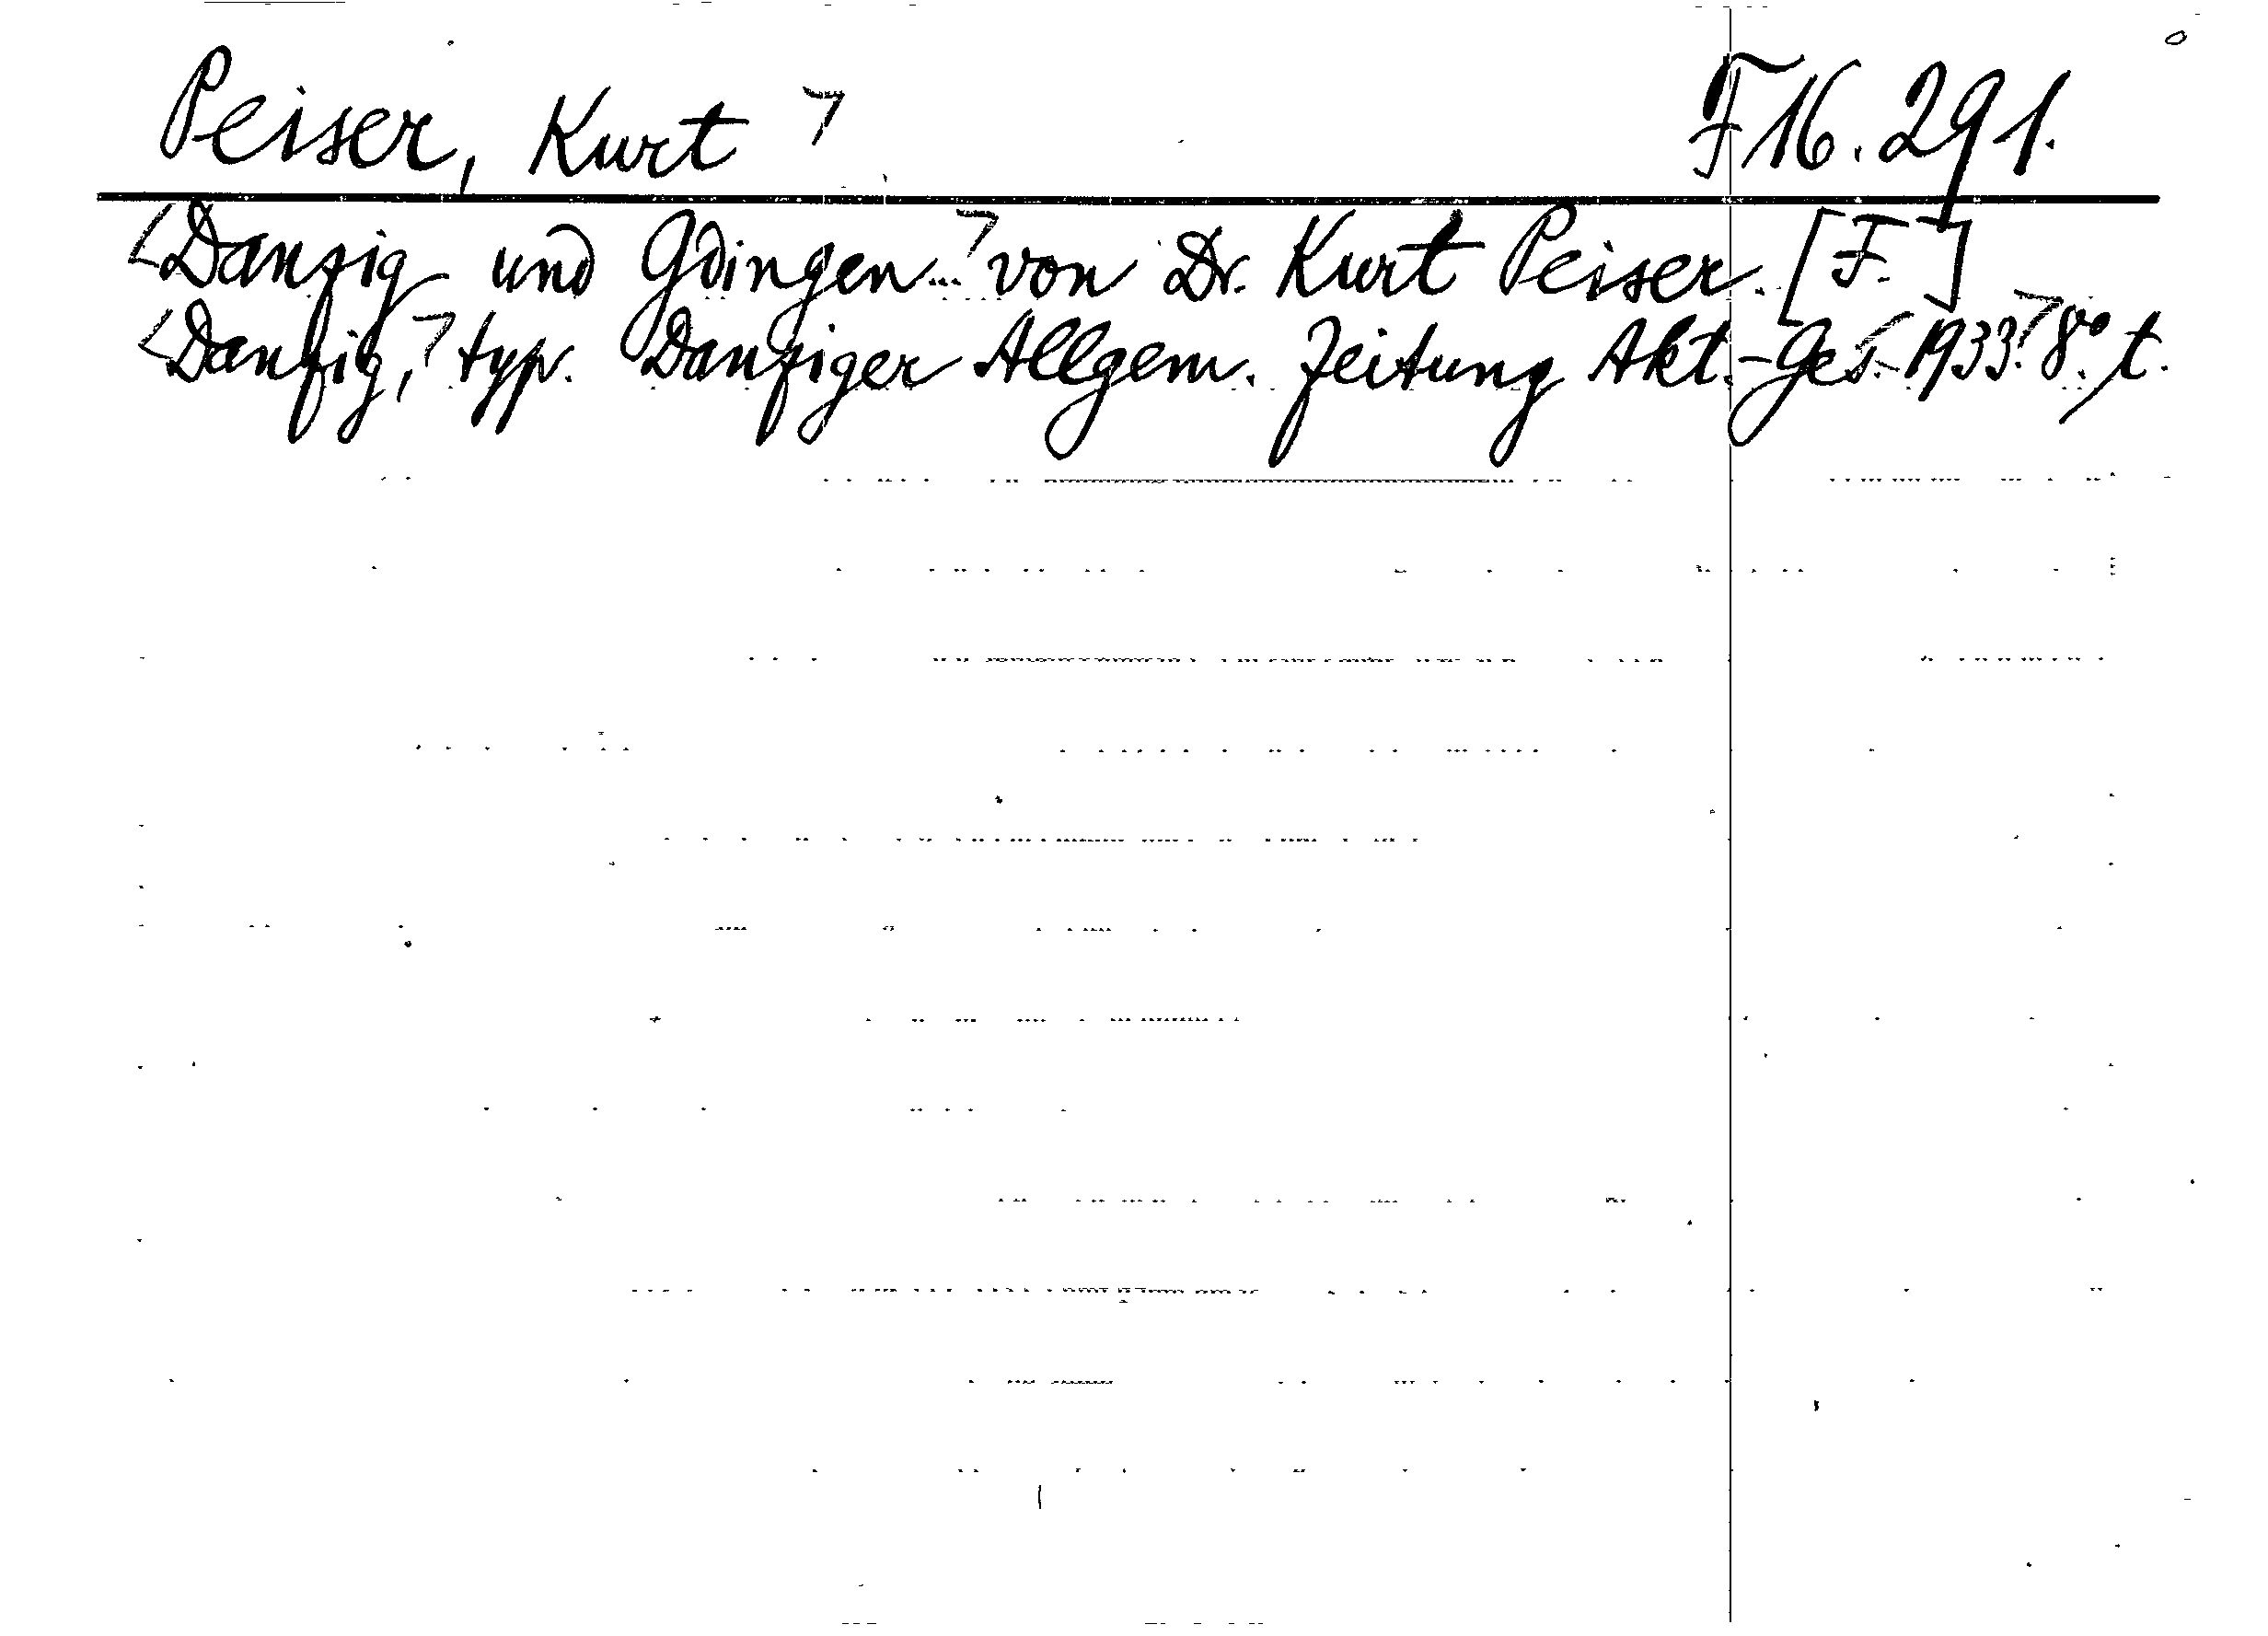 Peiser, Kurt ⌝ F 16.291.
<Danzig und Gdingen...⌝ von Dr. Kurt Peiser. [F.]
<Danzig,⌝ typ. Danziger Allgem. Zeitung Akt.-Ges. <1933.⌝ 8° t.